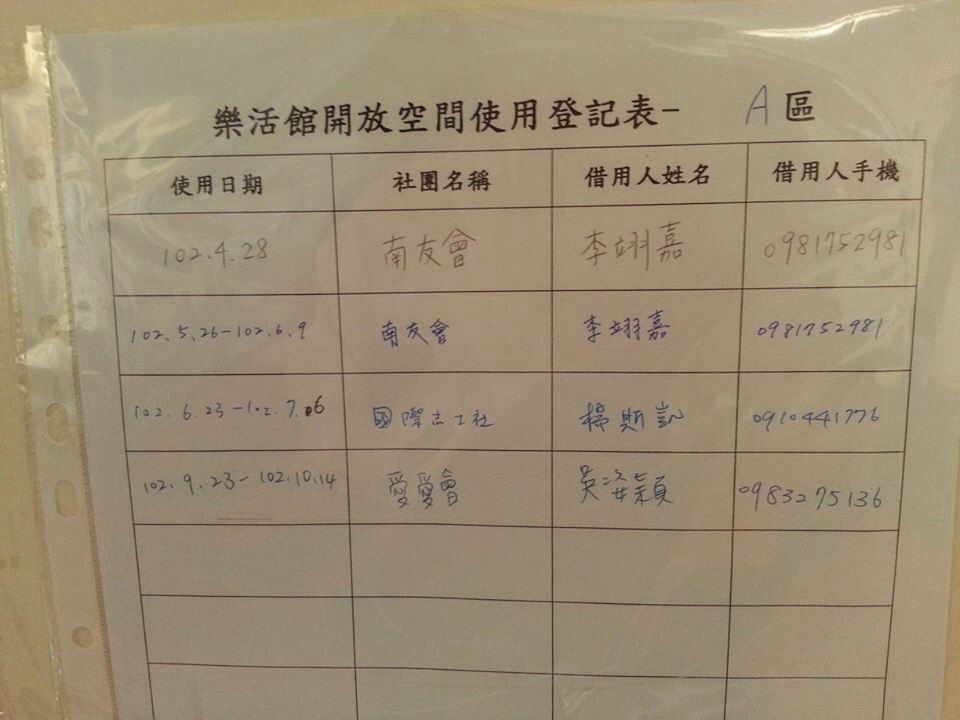 樂活館開放空間使用登記表- A區
使用日期 社團名稱 借用人姓名 借用人手機
102.4.28 南友會 李翊嘉 0981752981
102.5.26-102.6.9 南友會 李翊嘉 0981752981
102.6.23-102.7.06 國際志工社 楊斯凱 0910441776
102.9.23-102.10.14 愛愛會 吳姿穎 0983275136